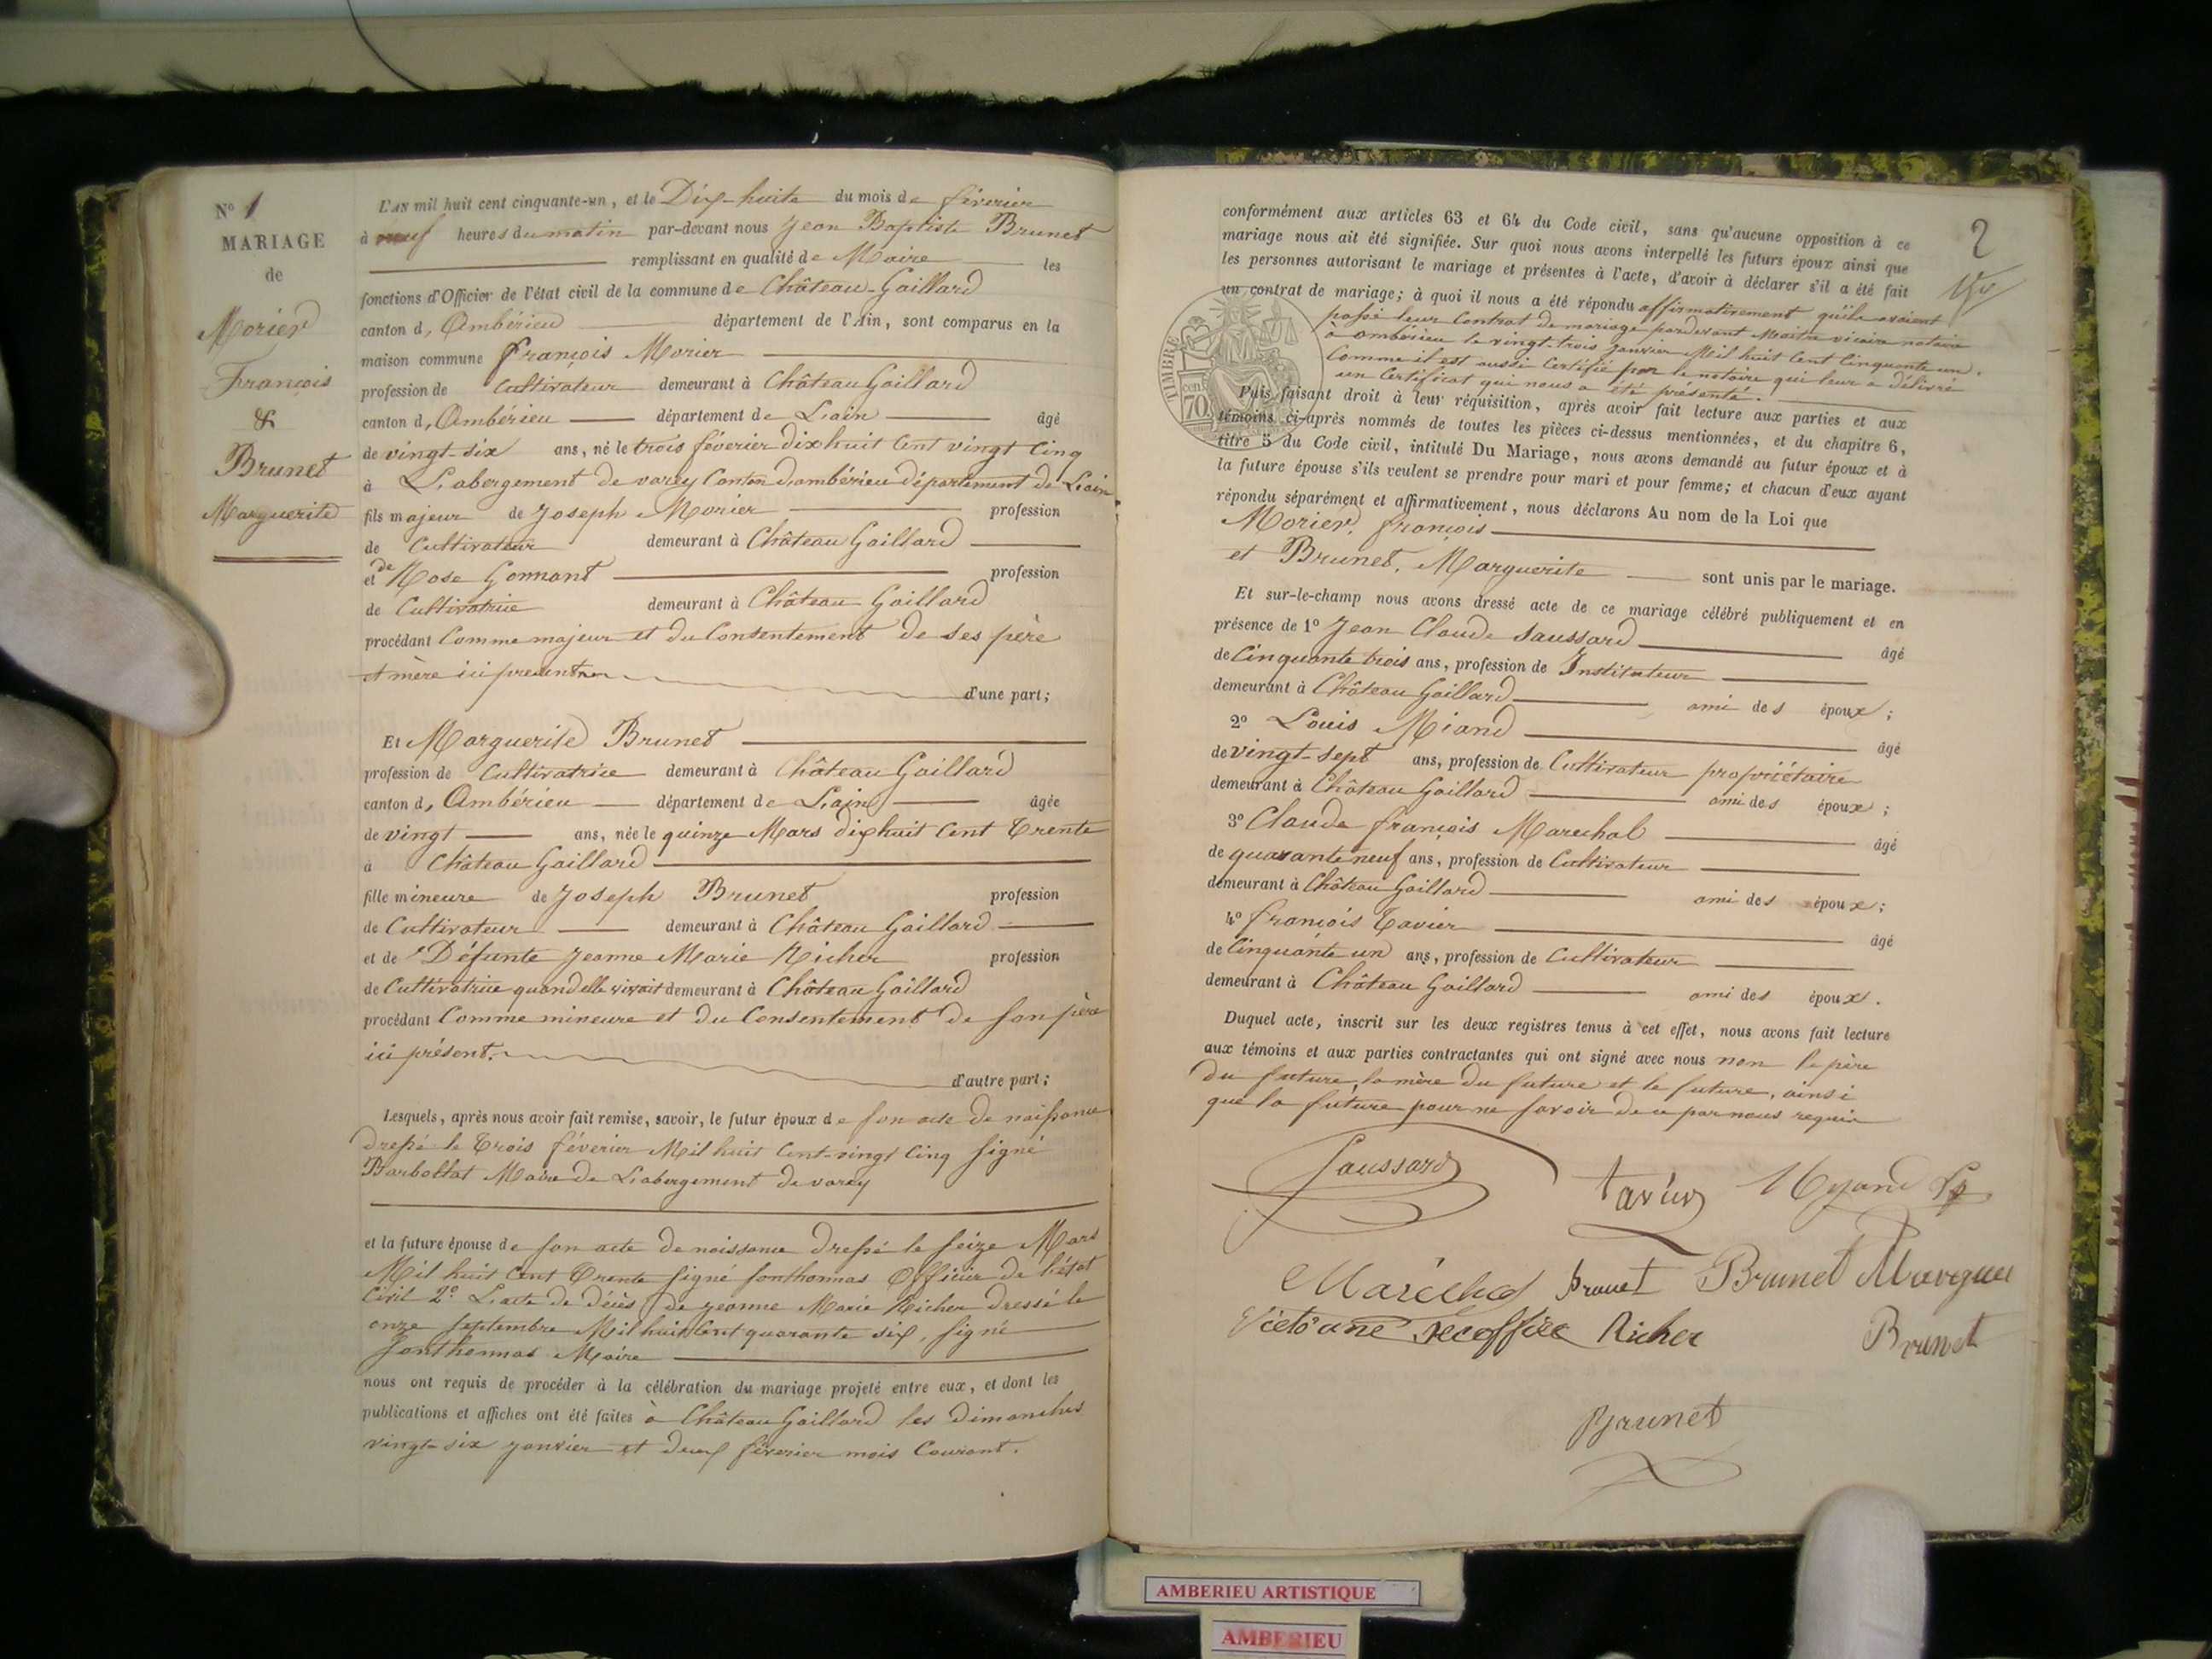 N° 1
MARIAGE
de
Morier
François
&
Brunet
Marguerite
L'AN mil huit cent cinquante-un, et le Dix-huite du mois de féverier
à neuf heures du matin par-devant nous Jean Baptiste Brunet
remplissant en qualité de Maire les
fonctions d'Officier de l'état civil de la commune de Château-Gaillard
canton d, Ambérieu département de l'Ain, sont comparus en la
maison commune françois Morier
profession de Cultivateur demeurant à Château Gaillard
canton d, Ambérieu département de L'ain âgé
de vingt-six ans, né le trois féverier dix huit Cent vingt Cinq
à L'abergement de varey Canton d'ambérieu département de L'ain
fils majeur de Joseph Morier profession
de Cultivateur demeurant à Château Gaillard
et de Rose Gonnant profession
de Cultivatrice demeurant à Château Gaillard
procédant Comme majeur et du Consentement de ses père
et mère ici présent
d'une part;
Et Marguerite Brunet
profession de Cultivatrice demeurant à Château Gaillard
canton d, Ambérieu département de L'ain âgée
de vingt ans, née le quinze Mars dix huit Cent Trente
à Château Gaillard
fille mineure de Joseph Brunet profession
de Cultivateur demeurant à Château Gaillard
et de Défunte Jeanne Marie Richer profession
de Cultivatrice quand elle vivait demeurant à Château Gaillard
procédant Comme mineure et du Consentement de son père
ici présent.
d'autre part;
Lesquels, après nous avoir fait remise, savoir, le futur époux de son acte de naissance
dressé le Trois féverier Mil huit Cent-vingt Cinq signé
Barbollat Maire de L'abergement de varey
et la future épouse de son acte de naissance dressé le seize Mars
Mil huit Cent Trente signé fonthonnas Officier de l'état
Civil 2° L'acte de décès de Jeanne Marie Richer dressé le
onze septembre Mil huit Cent quarante six, signé
fonthonnas Maire
nous ont requis de procéder à la célébration du mariage projeté entre eux, et dont les
publications et affiches ont été faites à Château Gaillard les dimanches
vingt-six janvier et deux féverier mois Courant.
2
conformément aux articles 63 et 64 du Code civil, sans qu'aucune opposition à ce
mariage nous ait été signifiée. Sur quoi nous avons interpellé les futurs époux ainsi que
les personnes autorisant le mariage et présentes à l'acte, d'avoir à déclarer s'il a été fait
un contrat de mariage; à quoi il nous a été répondu affirmativement qu'ils avaient
passé leur Contrat de mariage pardevant Maitre vicaire notaire
à ambérieu le vingt-trois janvier Mil huit Cent Cinquante un.
Comme il est aussi Certifié par le notaire qui leur a délivré
un Certificat qui nous a été présenté.
TIMBRE
70 cen
Puis faisant droit à leur réquisition, après avoir fait lecture aux parties et aux
témoins ci-après nommés de toutes les pièces ci-dessus mentionnées, et du chapitre 6,
titre 5 du Code civil, intitulé Du Mariage, nous avons demandé au futur époux et à
la future épouse s'ils veulent se prendre pour mari et pour femme; et chacun d'eux ayant
répondu séparément et affirmativement, nous déclarons Au nom de la Loi que
Morier, françois
et Brunet, Marguerite sont unis par le mariage.
Et sur-le-champ nous avons dressé acte de ce mariage célébré publiquement et en
présence de 1° Jean Claude Saussard âgé
de Cinquante trois ans, profession de Instituteur
demeurant à Château Gaillard ami des époux;
2° Louis Miand âgé
de vingt-sept ans, profession de Cultivateur propriétaire
demeurant à Château Gaillard ami des époux;
3° Claude françois Marechal âgé
de quarante neuf ans, profession de Cultivateur
demeurant à Château Gaillard ami des époux;
4° françois Tavier âgé
de Cinquante un ans, profession de Cultivateur
demeurant à Château Gaillard ami des époux.
Duquel acte, inscrit sur les deux registres tenus à cet effet, nous avons fait lecture
aux témoins et aux parties contractantes qui ont signé avec nous non le père
du future, la mère du future et le future, ainsi
que la future pour ne savoir de ce par nous requis
Saussard
tavier Myand
Maréchal Brunet Brunet Margue
Richer
Brunet
Brunet
AMBERIEU ARTISTIQUE
AMBERIEU